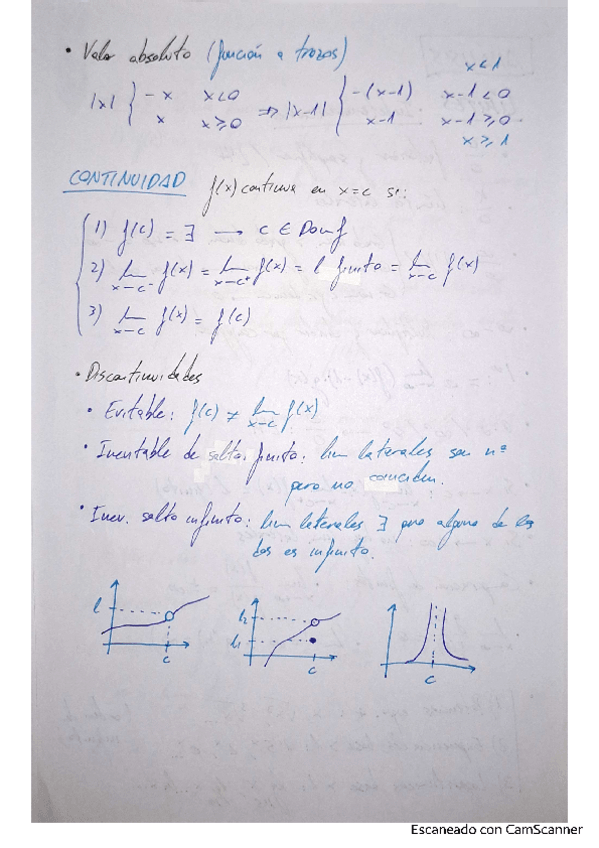 • Valor absoluto (función a trozos)
x<1
|x| { -x x<0 ⇒ |x-1| { -(x-1) x-1<0
x x≥0 x-1 x-1≥0
x≥1
CONTINUIDAD f(x) continua en x=c si:
1) f(c) = ∃ → c ∈ Dom f
2) lim x→c⁻ f(x) = lim x→c⁺ f(x) = l finito = lim x→c f(x)
3) lim x→c f(x) = f(c)
• Discontinuidades
• Evitable: f(c) ≠ lim x→c f(x)
• Inevitable de salto finito: lim laterales son nº
pero no coinciden.
• Inev. salto infinito: lim laterales ∃ pero alguno de los
dos es infinito.
l c
l₂ l₁ c
c
Escaneado con CamScanner